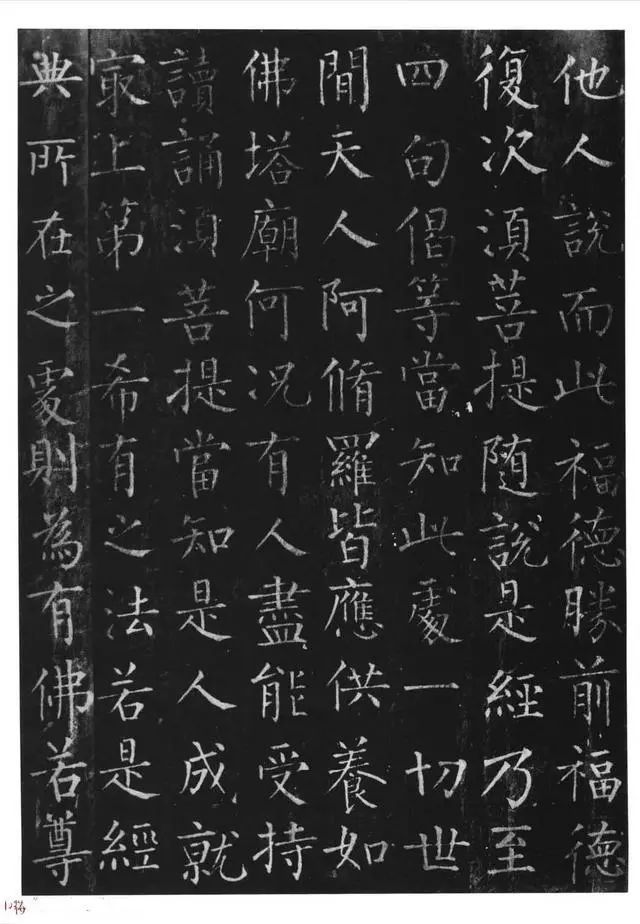 他人說而此福德勝前福德
復次須菩提隨說是經乃至
四句偈等當知此處一切世
間天人阿脩羅皆應供養如
佛塔廟何況有人盡能受持
讀誦須菩提當知是人成就
㝡上第一希有之法若是經
典所在之處則為有佛若尊